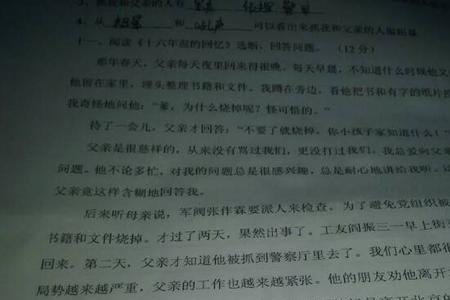 3、抓我和父亲的人有 警察
4、从 和 可以看出来抓我和父亲的人
十一、阅读《十六年前的回忆》选断，回答问题。（12 分）
那年春天，父亲每天夜里回来得很晚。每天早晨，不知道什么时候他又
他留在家里，埋头整理书籍和文件。我蹲在旁边，看他把书和有字的纸片投
我奇怪地问他：“爹，为什么烧掉呢？怪可惜的。”
待了一会儿，父亲才回答：“不要了就烧掉。你小孩子家知道什么！”
父亲是很慈祥的，从来没有骂过我们，更没打过我们。我总爱向父亲
问题。他不论多忙，对我的问题总是很感兴趣，总是耐心地讲给我听。
父亲竟这样含糊地回答我。
后来听母亲说，军阀张作霖要派人来检查。为了避免党组织被
书籍和文件烧掉。才过了两天，果然出事了。工友阎振三一早上街
回来。第二天，父亲才知道他被抓到警察厅里去了。我们心里都很
局势越来越严重，父亲的工作也越来越紧张。他的朋友劝他离开